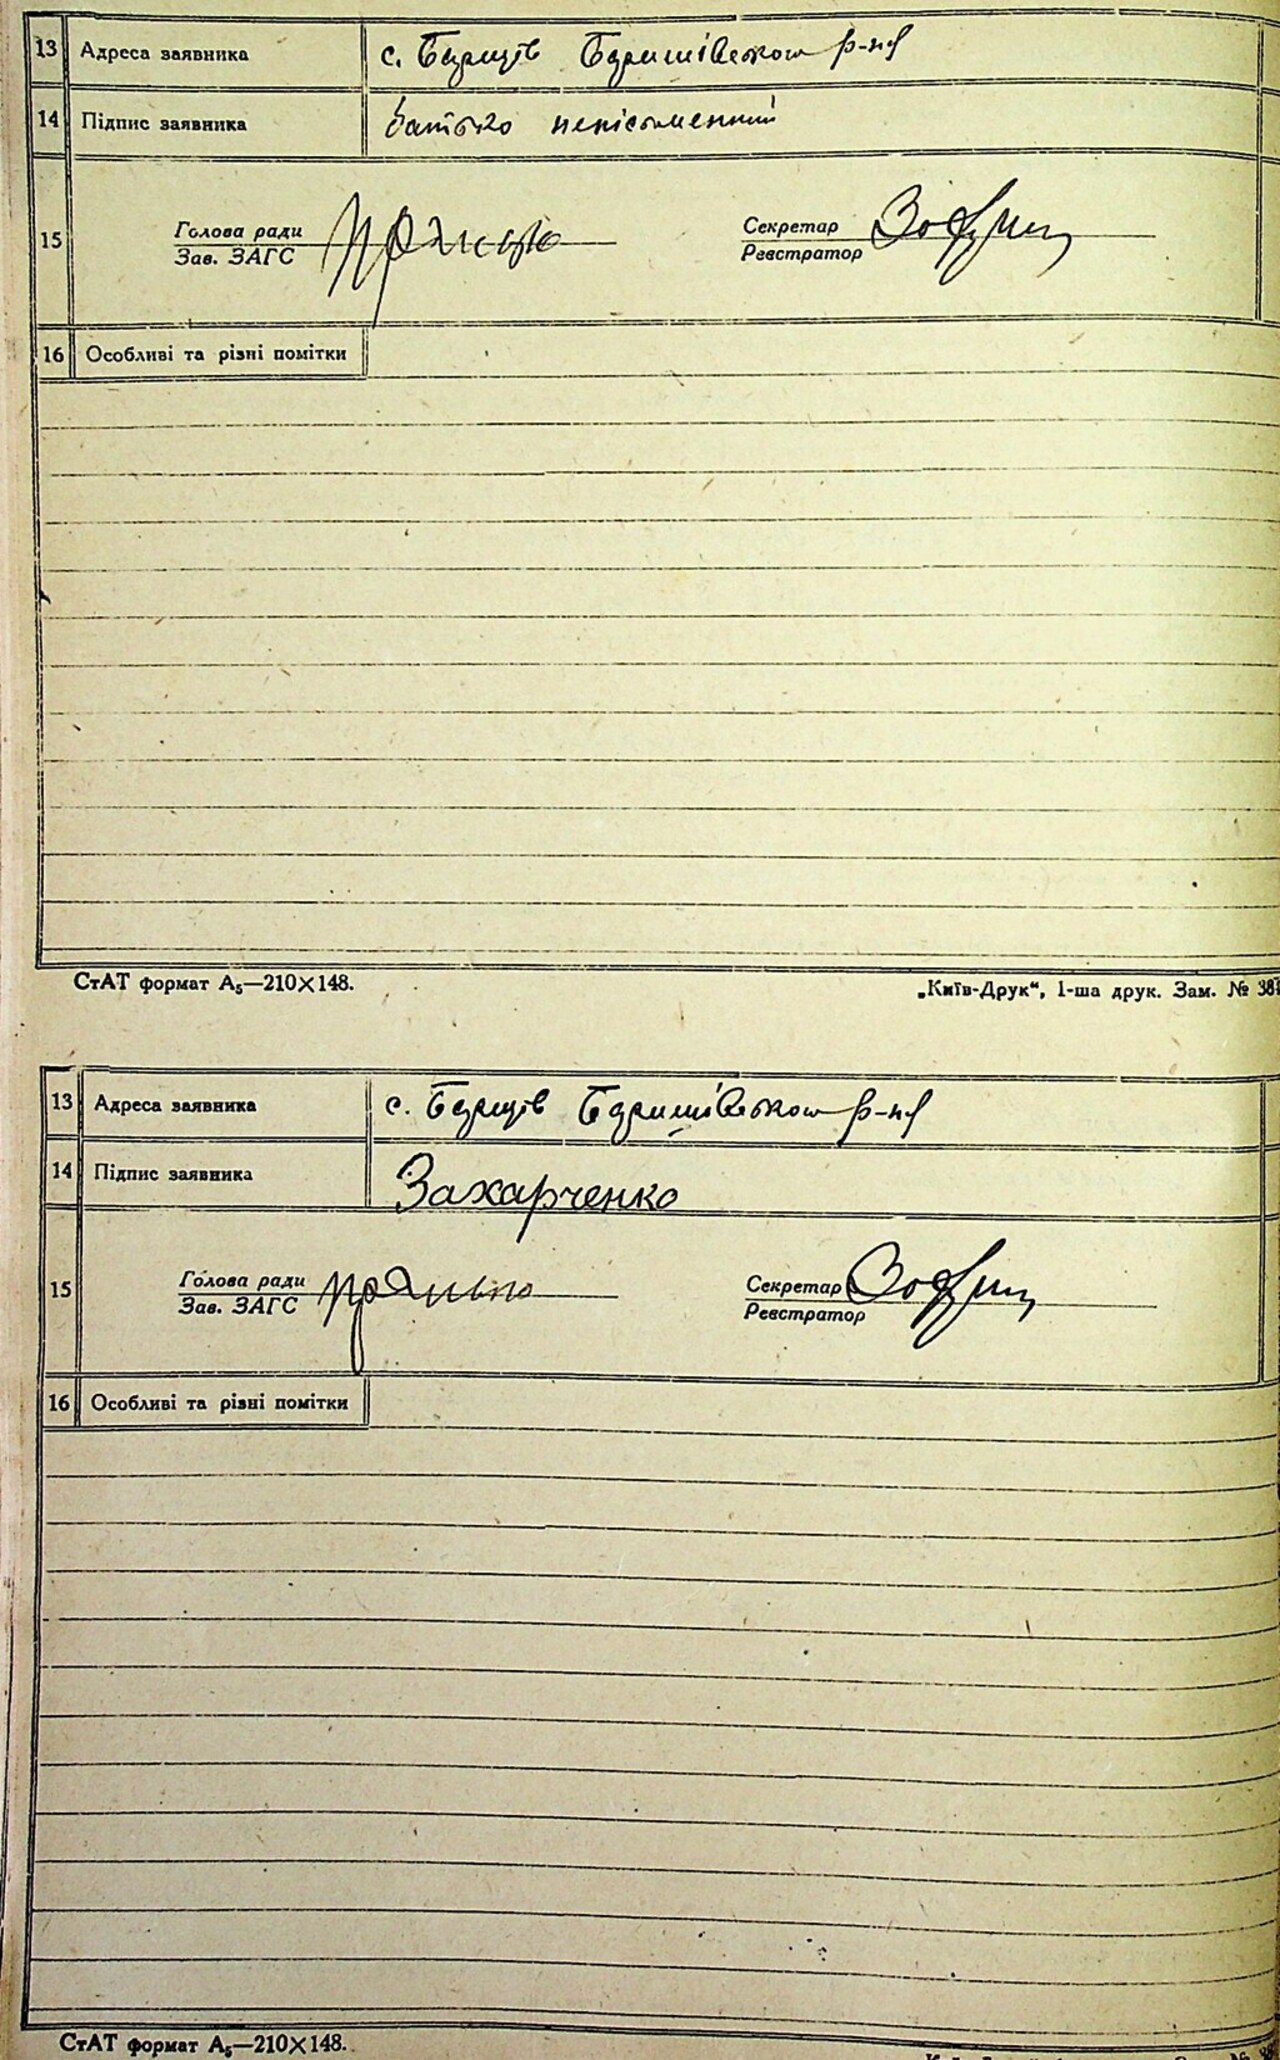 13 Адреса заявника с. Борщів Баришівського р-ну
14 Підпис заявника батько неписьменний
15 Голова ради Секретар
Зав. ЗАГС Реєстратор
16 Особливі та різні помітки
СтАТ формат А₅—210×148. „Київ-Друк“, 1-ша друк. Зам. № 38
13 Адреса заявника с. Борщів Баришівського р-ну
14 Підпис заявника Захарченко
15 Голова ради Секретар
Зав. ЗАГС Реєстратор
16 Особливі та різні помітки
СтАТ формат А₅—210×148.